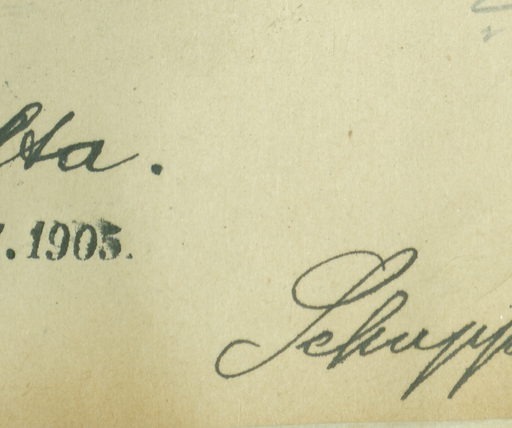 lta.
. 1905.
Schupp